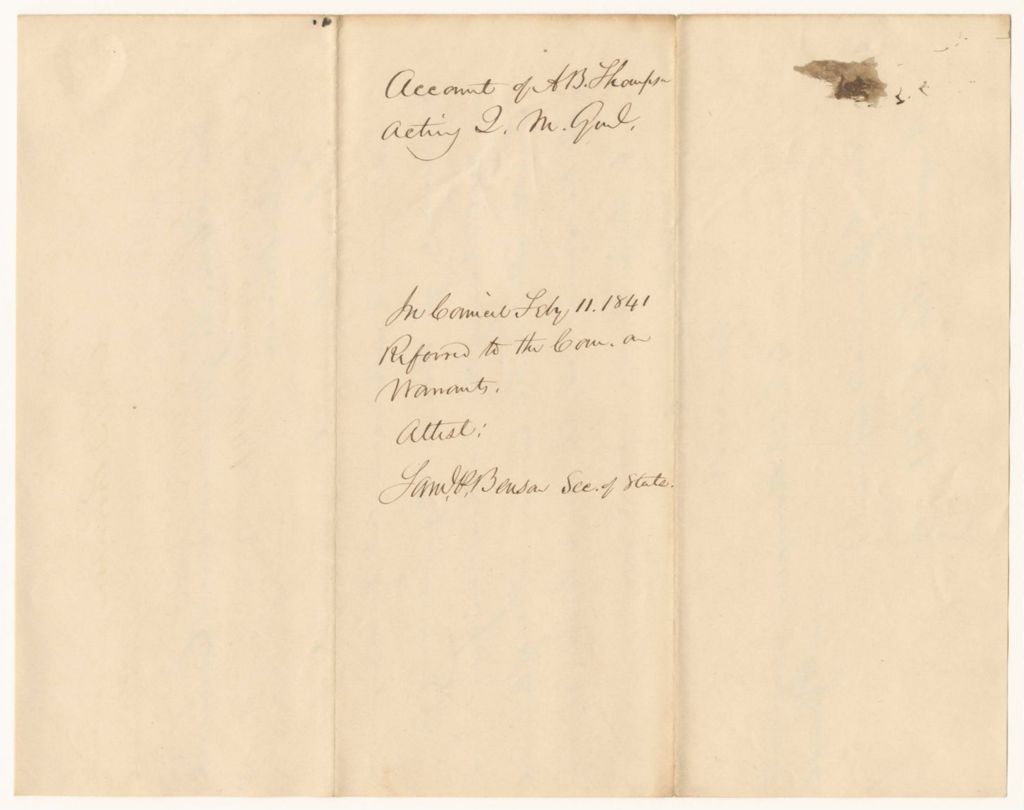 Account of A B. Thompson
Acting Q. M. Genl.
In Council Feby 11. 1841
Referred to the Com. on
Warrants.
Attest:
Saml. P. Benson Sec. of State.